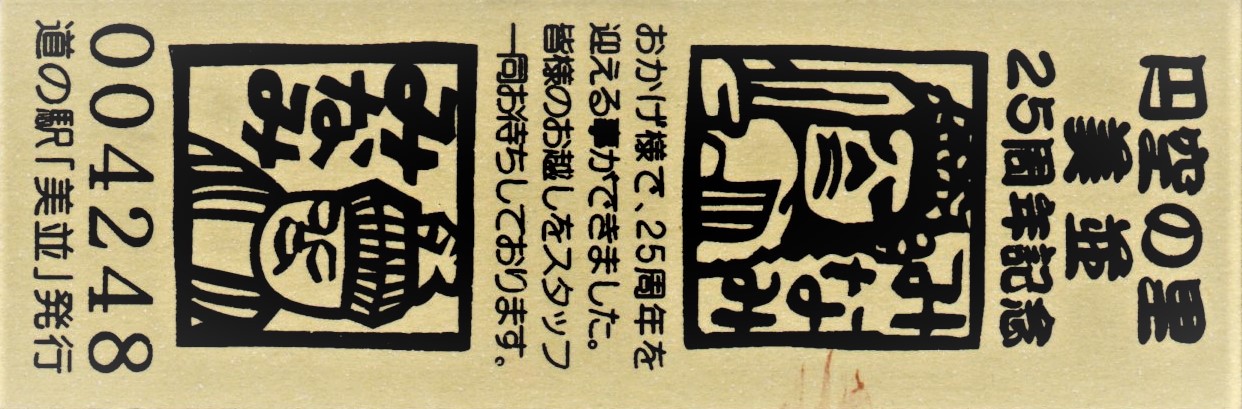 円空の里
美並
25周年記念
みなみ
おかげ様で、25周年を
迎える事ができました。
皆様のお越しをスタッフ
一同お待ちしております。
みなみ
004248
道の駅「美並」発行